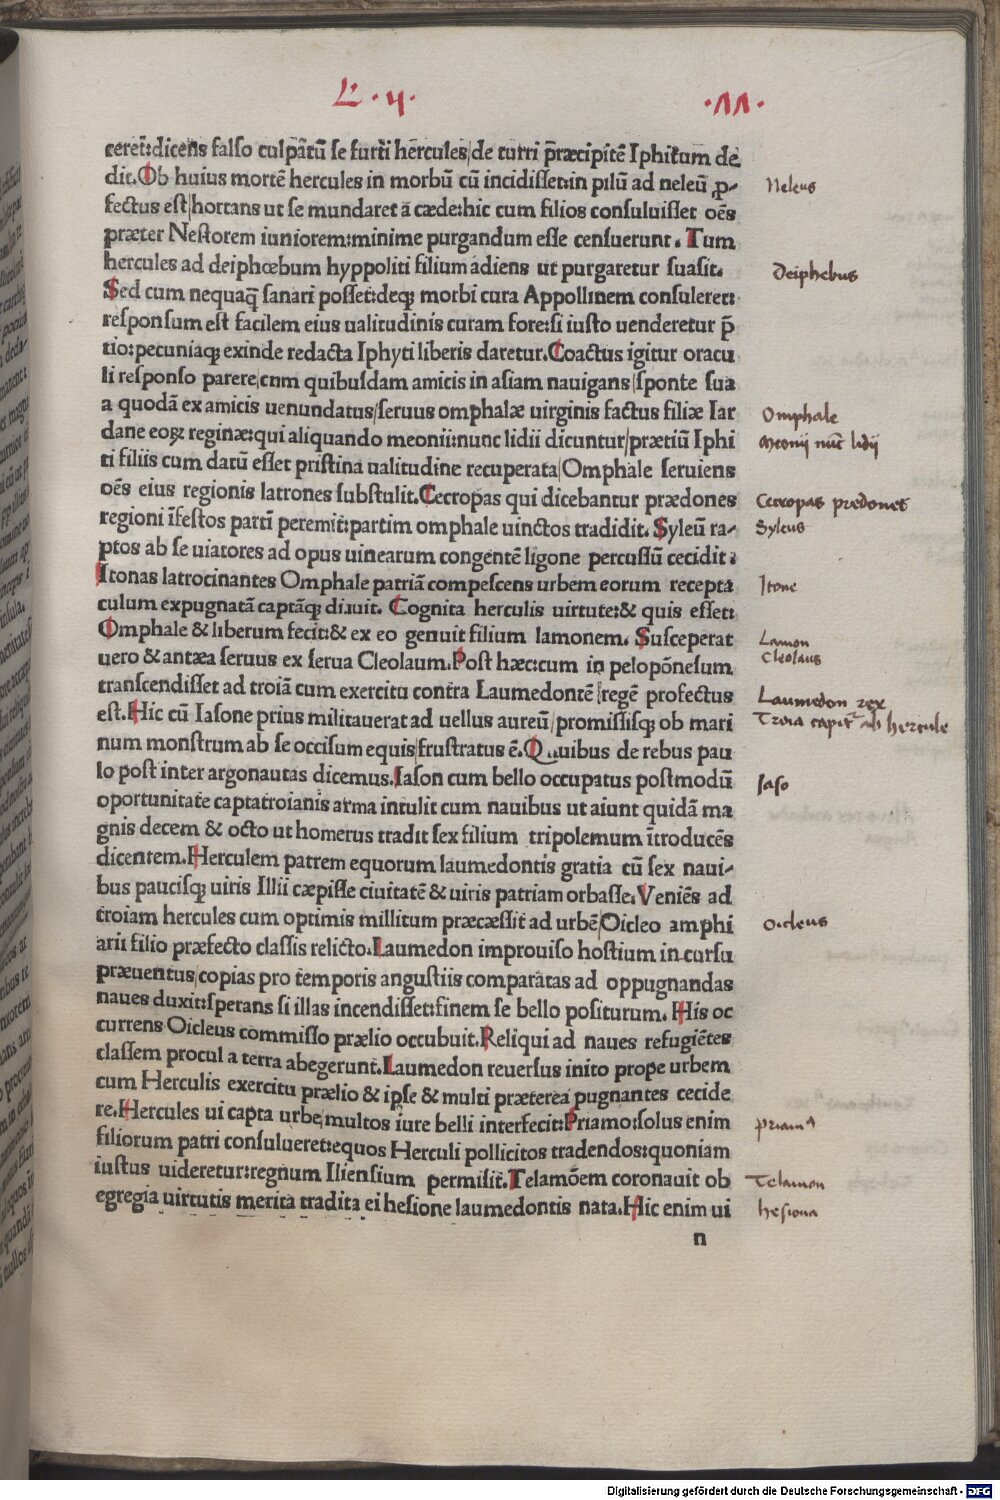 L. 4. .11.
ceret̄:dicens falso culpātū se furti hercules/de turri p̄ræcipitē Iphitum de
dit. Ob huius mortē hercules in morbū cū incidisset:in pilū ad neleū ꝓ- Neleus
fectus est/hortans ut se mundaret a cæde:hic cum filios consuluisset oēs
præter Nestorem iuniorem:minime purgandum esse censuerunt. Tum
hercules ad deiphœbum hyppoliti filium adiens ut purgaretur suasit. Deiphebus
Sed cum nequaq̄ sanari posset:deqꝫ morbi cura Appollinem consuleret:
responsum est facilem eius ualitudinis curam fore:si iusto uenderetur p̄
tio:pecuniaqꝫ exinde redacta Iphyti liberis daretur. Coactus igitur oracu
li responso parere/cum quibusdam amicis in asiam nauigans/sponte sua
a quodā ex amicis uenundatus/seruus omphalæ uirginis factus filiæ Iar Omphale
dane eoꝝ reginæ:qui aliquando meonii:nunc lidii dicuntur/prætiū Iphi Meonij nūc lidij
ti filiis cum datū esset pristina ualitudine recuperata/Omphale seruiens
oēs eius regionis latrones substulit. Cecropas qui dicebantur prædones Cecropas predones
regioni īfestos partī peremit:partim omphale uinctos tradidit. Syleū ra- Syleus
ptos ab se uiatores ad opus uinearum congentē ligone percussū cecidit:
Itonas latrocinantes Omphale patriā compescens urbem eorum recepta Itone
culum expugnatā captāqꝫ diruit. Cognita herculis uirtute:& quis esset:
Omphale & liberum fecit:& ex eo genuit filium lamonem. Susceperat Lamon
uero & antæa seruus ex serua Cleolaum. Post hæc:cum in pelopōnesum Cleolaus
transcendisset ad troiā cum exercitu contra Laumedontē regē profectus Laumedon rex
est. Hic cū Iasone prius militauerat ad uellus aureū/promissisqꝫ ob mari Troia capitr̄ ab hercule
num monstrum ab se occisum equis/frustratus ē. Quibus de rebus pau
lo post inter argonautas dicemus. Iason cum bello occupatus postmodū Iaso
oportunitate captatroianis arma intulit cum nauibus ut aiunt quidā ma
gnis decem & octo ut homerus tradit sex filium tripolemum ītroducēs
dicentem. Herculem patrem equorum laumedontis gratia cū sex naui-
bus paucisqꝫ uiris Illii cæpisse ciuitatē & uiris patriam orbasse. Veniēs ad
troiam hercules cum optimis millitum præcæssit ad urbē/Oicleo amphi Oicleus
arii filio præfecto classis relicto. Laumedon improuiso hostium in cursu
præuentus/copias pro temporis angustiis comparatas ad oppugnandas
naues duxit:sperans si illas incendisset:finem se bello positurum. His oc
currens Oicleus commisso prælio occubuit. Reliqui ad naues refugiētes
classem procul a terra abegerunt. Laumedon reuersus inito prope urbem
cum Herculis exercitu prælio & ipse & multi præterea pugnantes cecide
re. Hercules ui capta urbe multos iure belli interfecit:Priamo:solus enim Priamꝰ
filiorum patri consulueret:equos Herculi pollicitos tradendos:quoniam
iustus uideretur:regnum Iliensium permisit. Telamōem coronauit ob Telamon
egregia uirtutis merita tradita ei hesione laumedontis nata. Hic enim ui hesiona
n
Digitalisierung gefördert durch die Deutsche Forschungsgemeinschaft - DFG